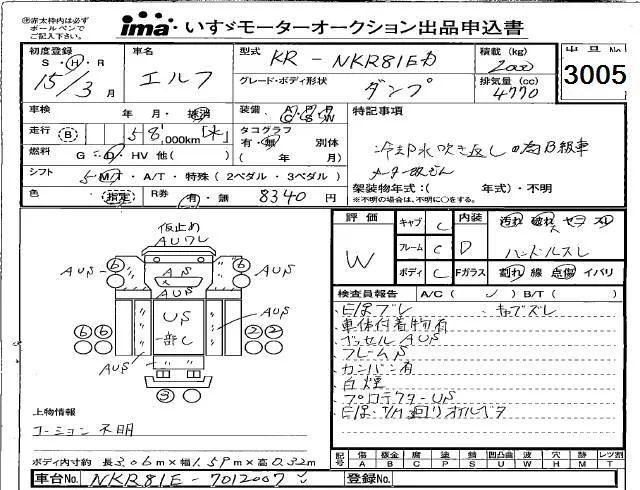 ㊟赤太枠内は必ず
ボールペンで
ご記入下さい。
ima いすゞモーターオークション出品申込書
初度登録 車名 型式 KR - NKR81Eカ 積載 (kg) 2000 出品No
S・H・R 15/3月 エルフ グレード・ボディ形状 ダンプ 排気量 (cc) 4770 3005
車検 年 月・抹消 装備 特記事項
走行 B 58,000km タコグラフ 有・無 別体
燃料 G・D・HV 他( ) ( 年 月)
冷却水吹き返しの為B級車
シフト 5MT・A/T・特殊(2ペダル・3ペダル) メーター
色 指定 R券 有・無 8340 円 架装物年式:( 年式)・不明
※不明の場合は、不明に○をする。
仮止め
AUワレ
AUS
AUS
AS
AUS
US
一部し
AUS
AUS
上物情報
コーション 不明
評価 W
キャブ C 内装 D 汚れ 破れ
フレーム C ハンドルスレ
ボディ C Fガラス 割れ 線 点傷・イバリ
検査員報告 A/C ( ) B/T ( )
E/gブレ キャブズレ
車体付着物有
ベッセル AUS
フレームS
カンバン有
白煙
プロテクターUS
E/g・T/M廻りオイルベタ
記号 傷 板金 腐 塗 錆 凹凸曲 波 穴 時 レツ割
A B C P S U W H M T
ボディ内寸約 長3.06m×幅1.59m×高0.32m
車台No. NKR81E-7012007 登録No.